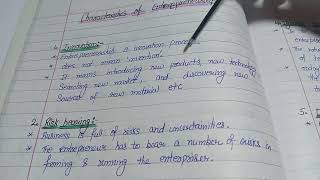 Characteristics of Entrepreneurship
1. Innovation:
* Entrepreneurship is innovation process.
* does not mean 'invention'.
* It means introducing new products, new technology
Searching new market, and discovering new
Sources of raw material etc.
2. Risk bearing:
* Business is full of risks and uncertainities.
* The entrepreneur has to bear a number of risks in
forming & running the enterprises.
3.